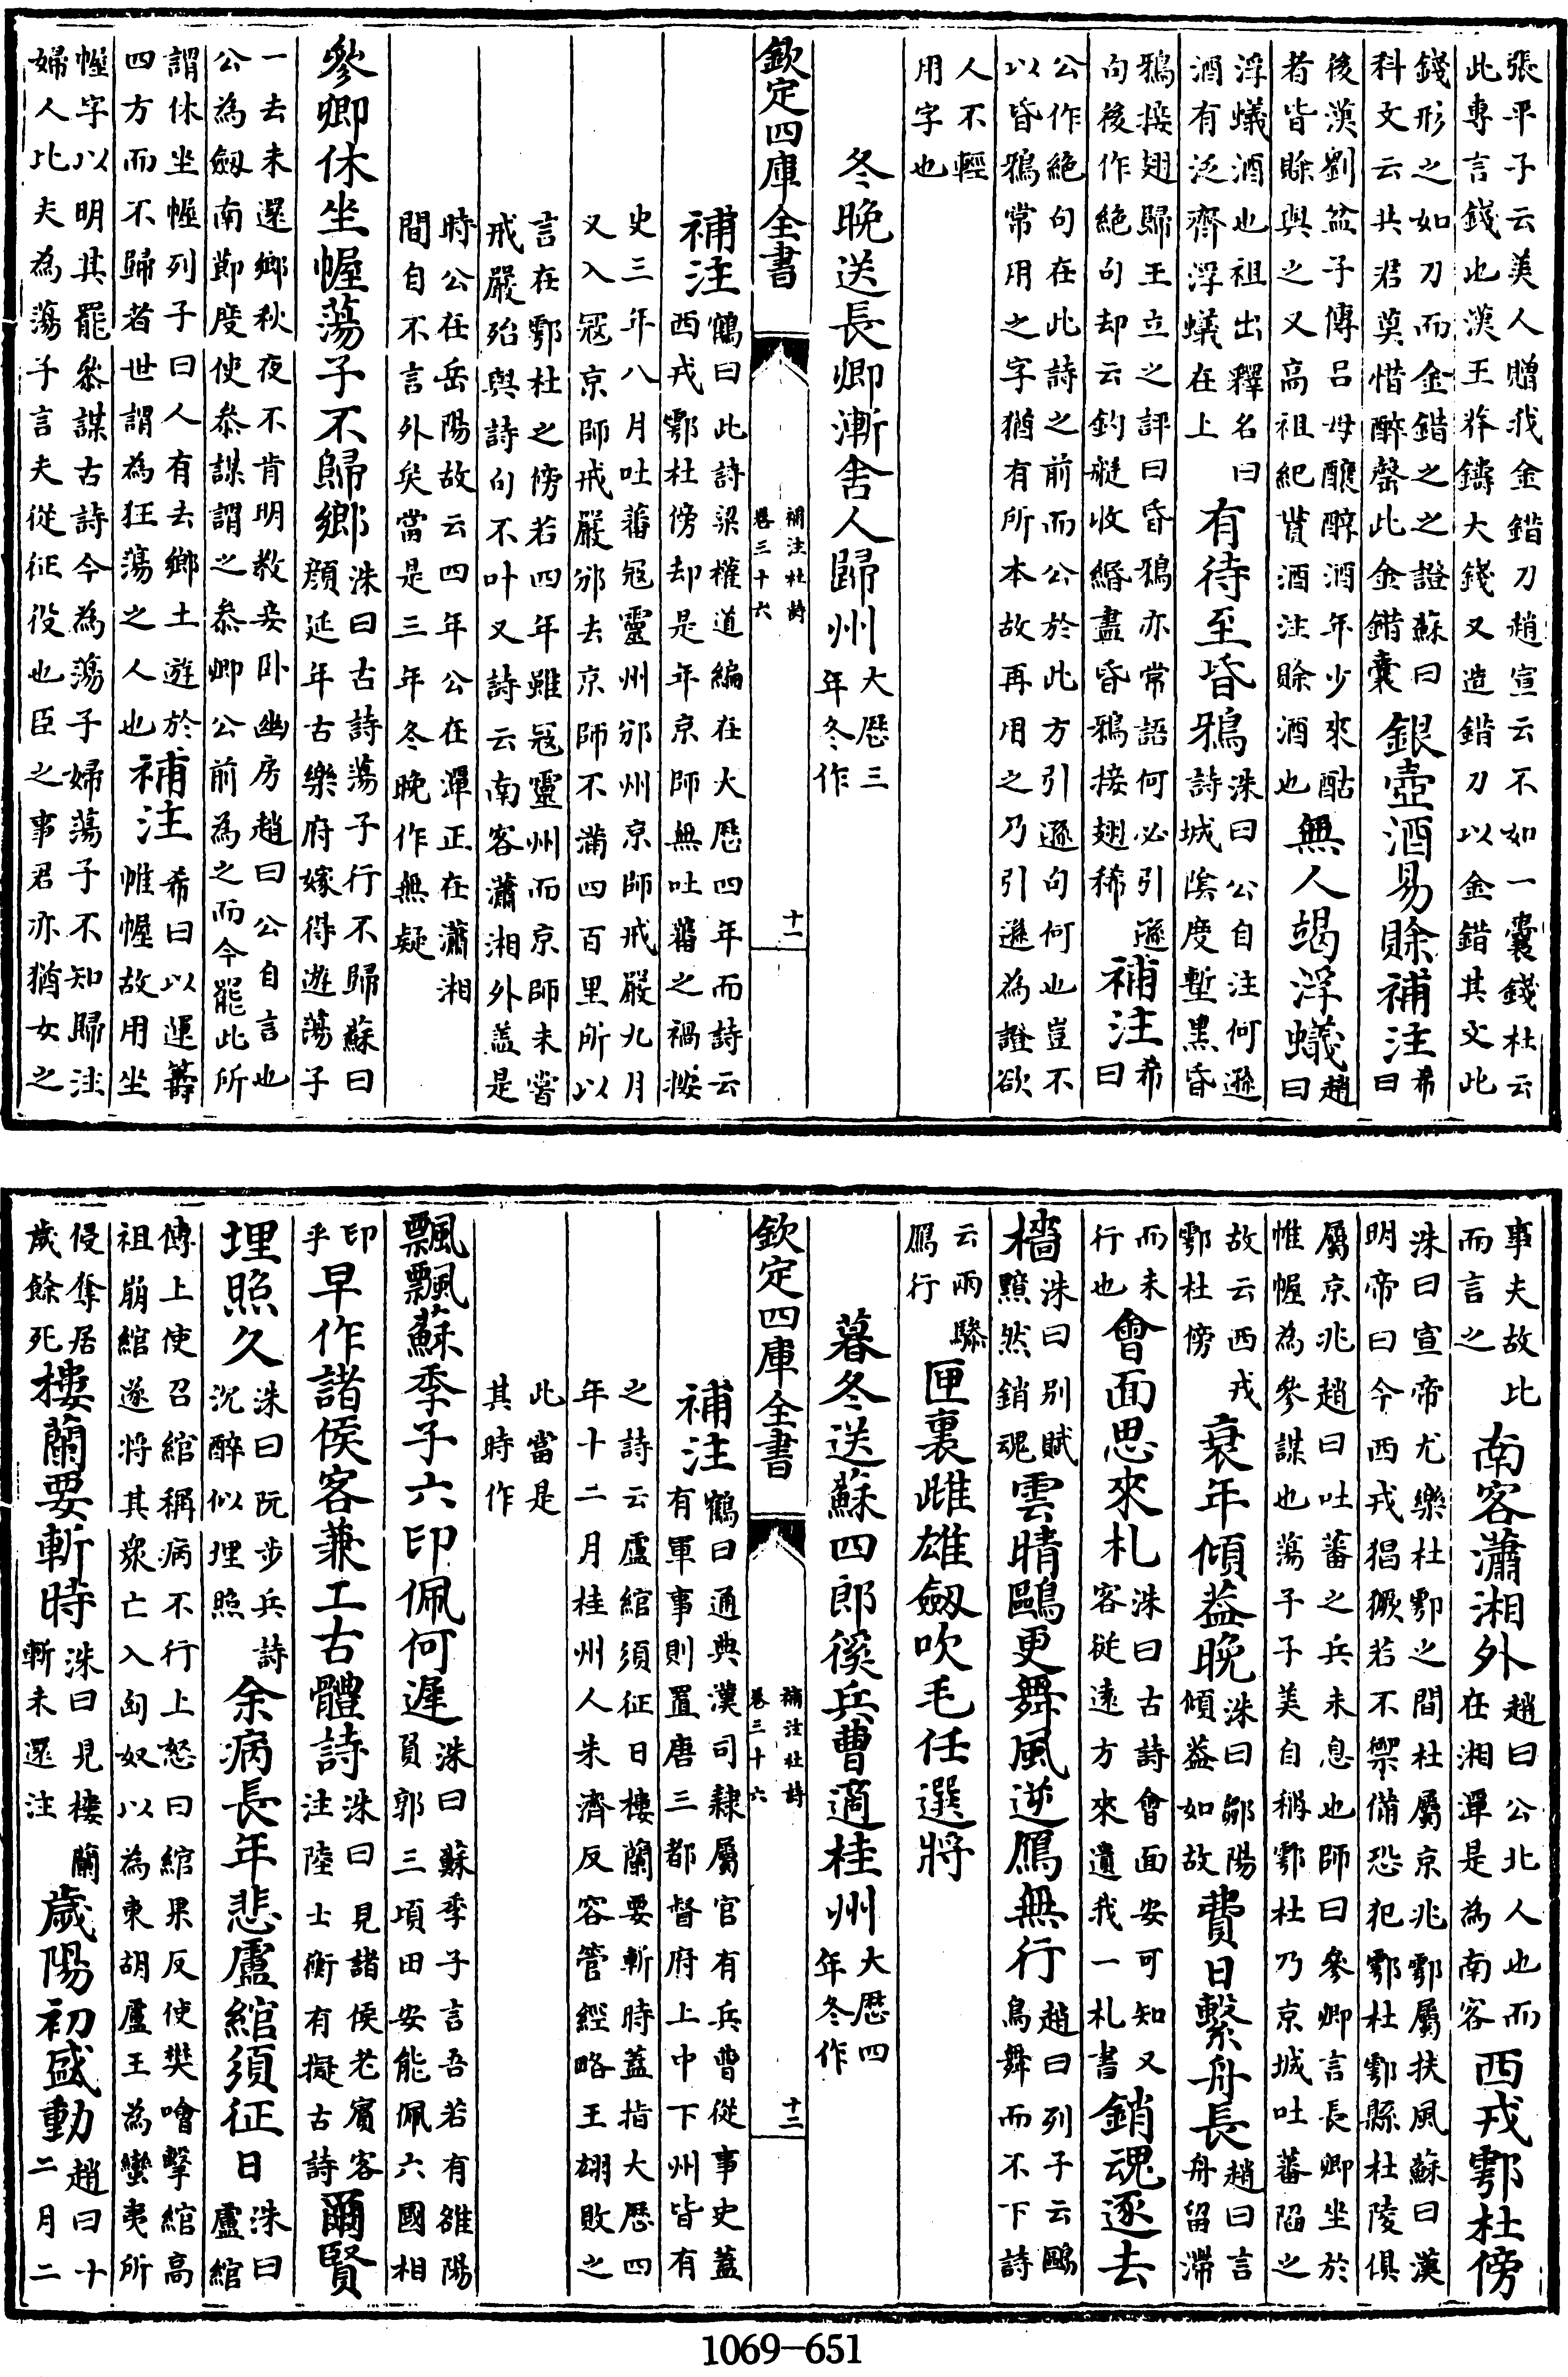 張平子云美人贈我金錯刀趙宣云不如一囊錢杜云
此專言錢也漢王莽鑄大錢又造錯刀以金錯其文此
錢形之如刀而金錯之之證蘇曰
科文云共君莫惜醉罄此金錯囊
銀壺酒易賒補注希曰
後漢劉盆子傳吕母釀醇酒年少來酤
者皆賒與之又高祖紀貰酒注賒酒也
無人竭浮蟻趙曰
浮蟻酒也祖出釋名曰
酒有泛齊浮蟻在上
有待至昏鴉
洙曰公自注何遜
詩城陰度塹黑昏
鴉接翅歸王立之評曰昏鴉亦常語何必引遜
句後作絶句却云釣艇收緡盡昏鴉接翅稀
補注希曰
公作絶句在此詩之前而公於此方引遜句何也豈不
以昏鴉常用之字猶有所本故再用之乃引遜為證欲
人不輕
用字也
冬晚送長卿漸舍人歸州
大歴三
年冬作
欽定四庫全書
補注杜詩
卷三十六
十一
補注
鶴曰此詩梁權道編在大歴四年而詩云
西戎鄠杜傍却是年京師無吐蕃之禍按
史三年八月吐蕃冦靈州邠州京師戒嚴九月
又入冦京師戒嚴邠去京師不滿四百里所以
言在鄠杜之傍若四年雖冦靈州而京師未嘗
戒嚴殆與詩句不叶又詩云南客瀟湘外盖是
時公在岳陽故云四年公在潭正在瀟湘
間自不言外矣當是三年冬晚作無疑
參卿休坐幄蕩子不歸鄉
洙曰古詩蕩子行不歸蘇曰
顔延年古樂府嫁得遊蕩子
一去未還鄉秋夜不肯明教妾卧幽房趙曰公自言也
公為劒南節度使叅謀謂之叅卿公前為之而今罷此所
謂休坐幄列子曰人有去鄉土遊於
四方而不歸者世謂為狂蕩之人也
補注
希曰以運籌
帷幄故用坐
幄字以明其罷叅謀古詩今為蕩子婦蕩子不知歸注
婦人比夫為蕩子言夫從征役也臣之事君亦猶女之
事夫故比
而言之
南客瀟湘外
趙曰公北人也而
在湘潭是為南客
西戎鄠杜傍
洙曰宣帝尤樂杜鄠之間杜屬京兆鄠屬扶風蘇曰漢
明帝曰今西戎猖獗若不禦備恐犯鄠杜鄠縣杜陵俱
屬京兆趙曰吐蕃之兵未息也師曰參卿言長卿坐於
惟幄為參謀也蕩子子美自稱鄠杜乃京城吐蕃陷之
故云西戎
鄠杜傍
衰年傾葢晚
洙曰鄒陽
傾葢如故
費日繫舟長
趙曰言
舟留滯
而未
行也
會面思來札
洙曰古詩會面安可知又
客從遠方來遺我一札書
銷魂逐去
檣
洙曰别賦
黯然銷魂
雲晴鷗更舞風逆鴈無行
趙曰列子云鷗
鳥舞而不下詩
云兩驂
鴈行
匣裏雌雄劒吹毛任選將
暮冬送蘇四郎徯兵曹適桂州
大歴四
年冬作
欽定四庫全書
補注杜詩
卷三十六
十二
補注
鶴曰通典漢司隸屬官有兵曹從事史蓋
有軍事則置唐三都督府上中下州皆有
之詩云盧綰須征日樓蘭要斬時蓋指大歴四
年十二月桂州人朱濟反容管經略王翃敗之
此當是
其時作
飄飄蘇季子六印佩何遲
洙曰蘇季子言吾若有雒陽
負郭三頃田安能佩六國相
印
乎
早作諸侯客兼工古體詩
洙曰見諸侯老賓客
注陸士衡有擬古詩
爾賢
埋照久
洙曰阮步兵詩
沉醉似埋照
余病長年悲盧綰須征日
洙曰
盧綰
傳上使召綰稱病不行上怒曰綰果反使樊噲擊綰高
祖崩綰遂將其衆亡入匈奴以為東胡盧王為蠻夷所
侵奪居
歲餘死
樓蘭要斬時
洙曰見樓蘭
斬未還注
歲陽初盛動
趙曰十
二月二
1069-651